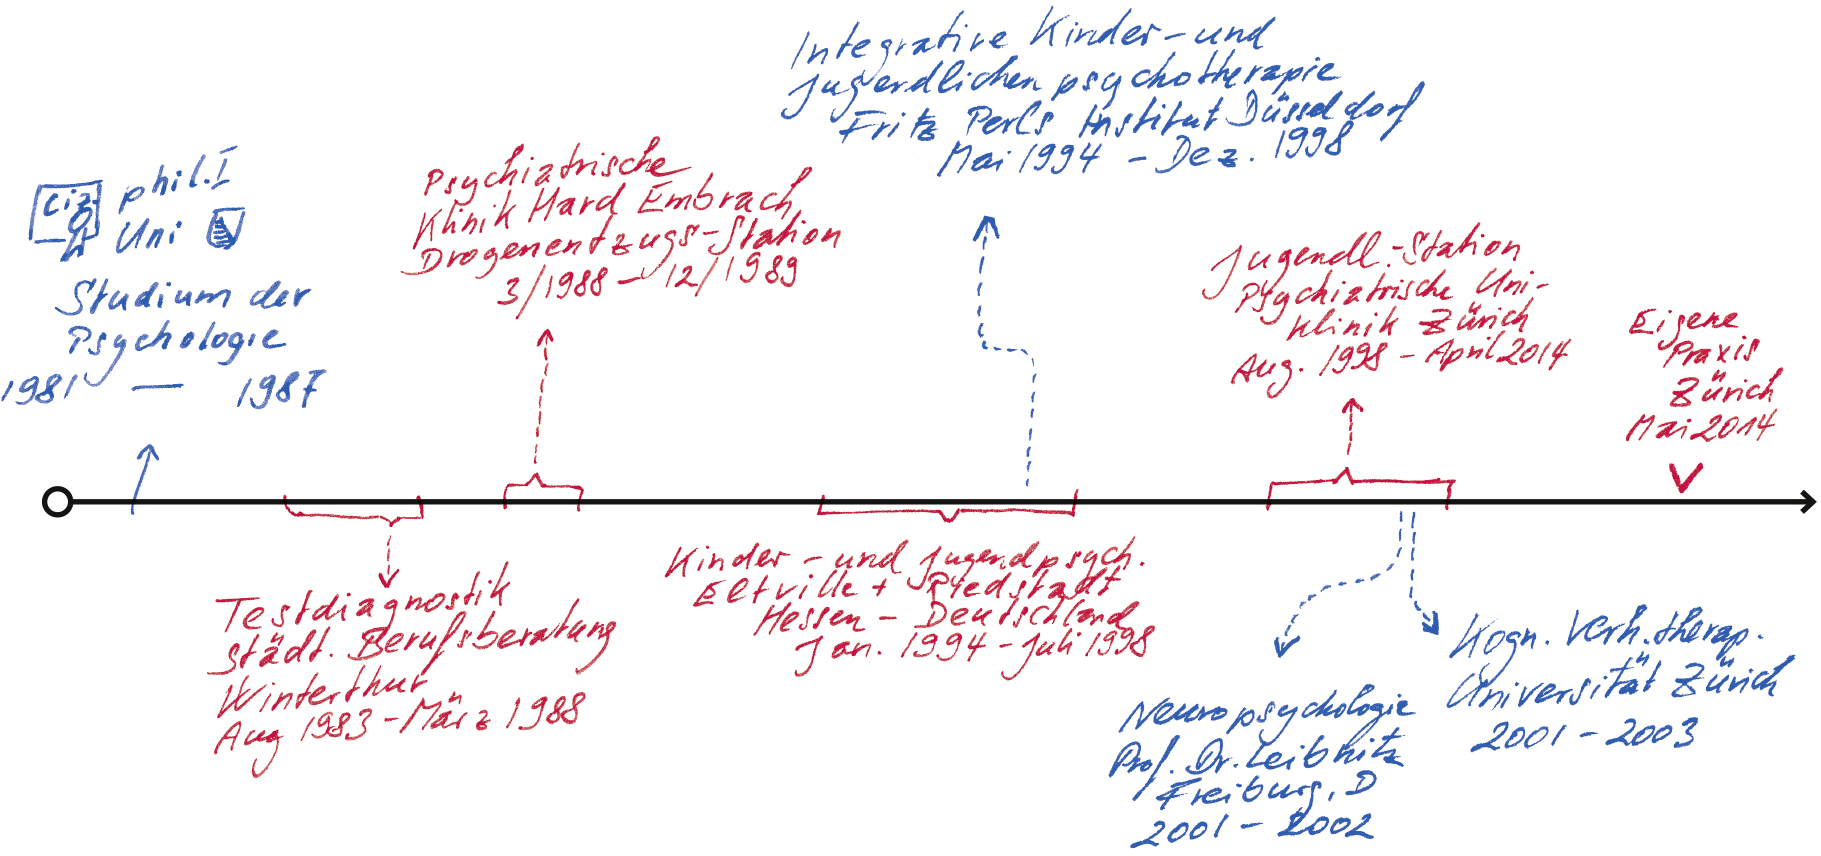 Liz. phil. I
Uni
Studium der
Psychologie
1981 — 1987
Testdiagnostik
städt. Berufsberatung
Winterthur
Aug 1983 – März 1988
Psychiatrische
Klinik Hard Embrach
Drogenentzugs-Station
3/1988 – 12/1989
Kinder- und Jugendpsych.
Eltville + Riedstadt
Hessen – Deutschland
Jan. 1994 – Juli 1998
Integrative Kinder- und
Jugendlichenpsychotherapie
Fritz Perls Institut Düsseldorf
Mai 1994 – Dez. 1998
Jugendl.-Station
Psychiatrische Uni-
klinik Zürich
Aug. 1998 – April 2014
Neuropsychologie
Prof. Dr. Leibnitz
Freiburg, D
2001 – 2002
Kogn. Verh.therap.
Universität Zürich
2001 – 2003
Eigene
Praxis
Zürich
Mai 2014